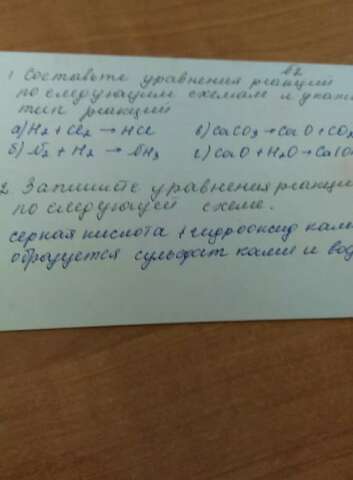 в2
1 Составьте уравнения реакций
по следующим схемам и укажи
тип реакций
а) H₂ + Cl₂ → HCl в) CaCO₃ → CaO + CO₂
б) N₂ + H₂ → NH₃ г) CaO + H₂O → Ca(OH
2 Запишите уравнения реакци
по следующей схеме.
серная кислота + гидрооксид кали
образуется сульфат калия и вод